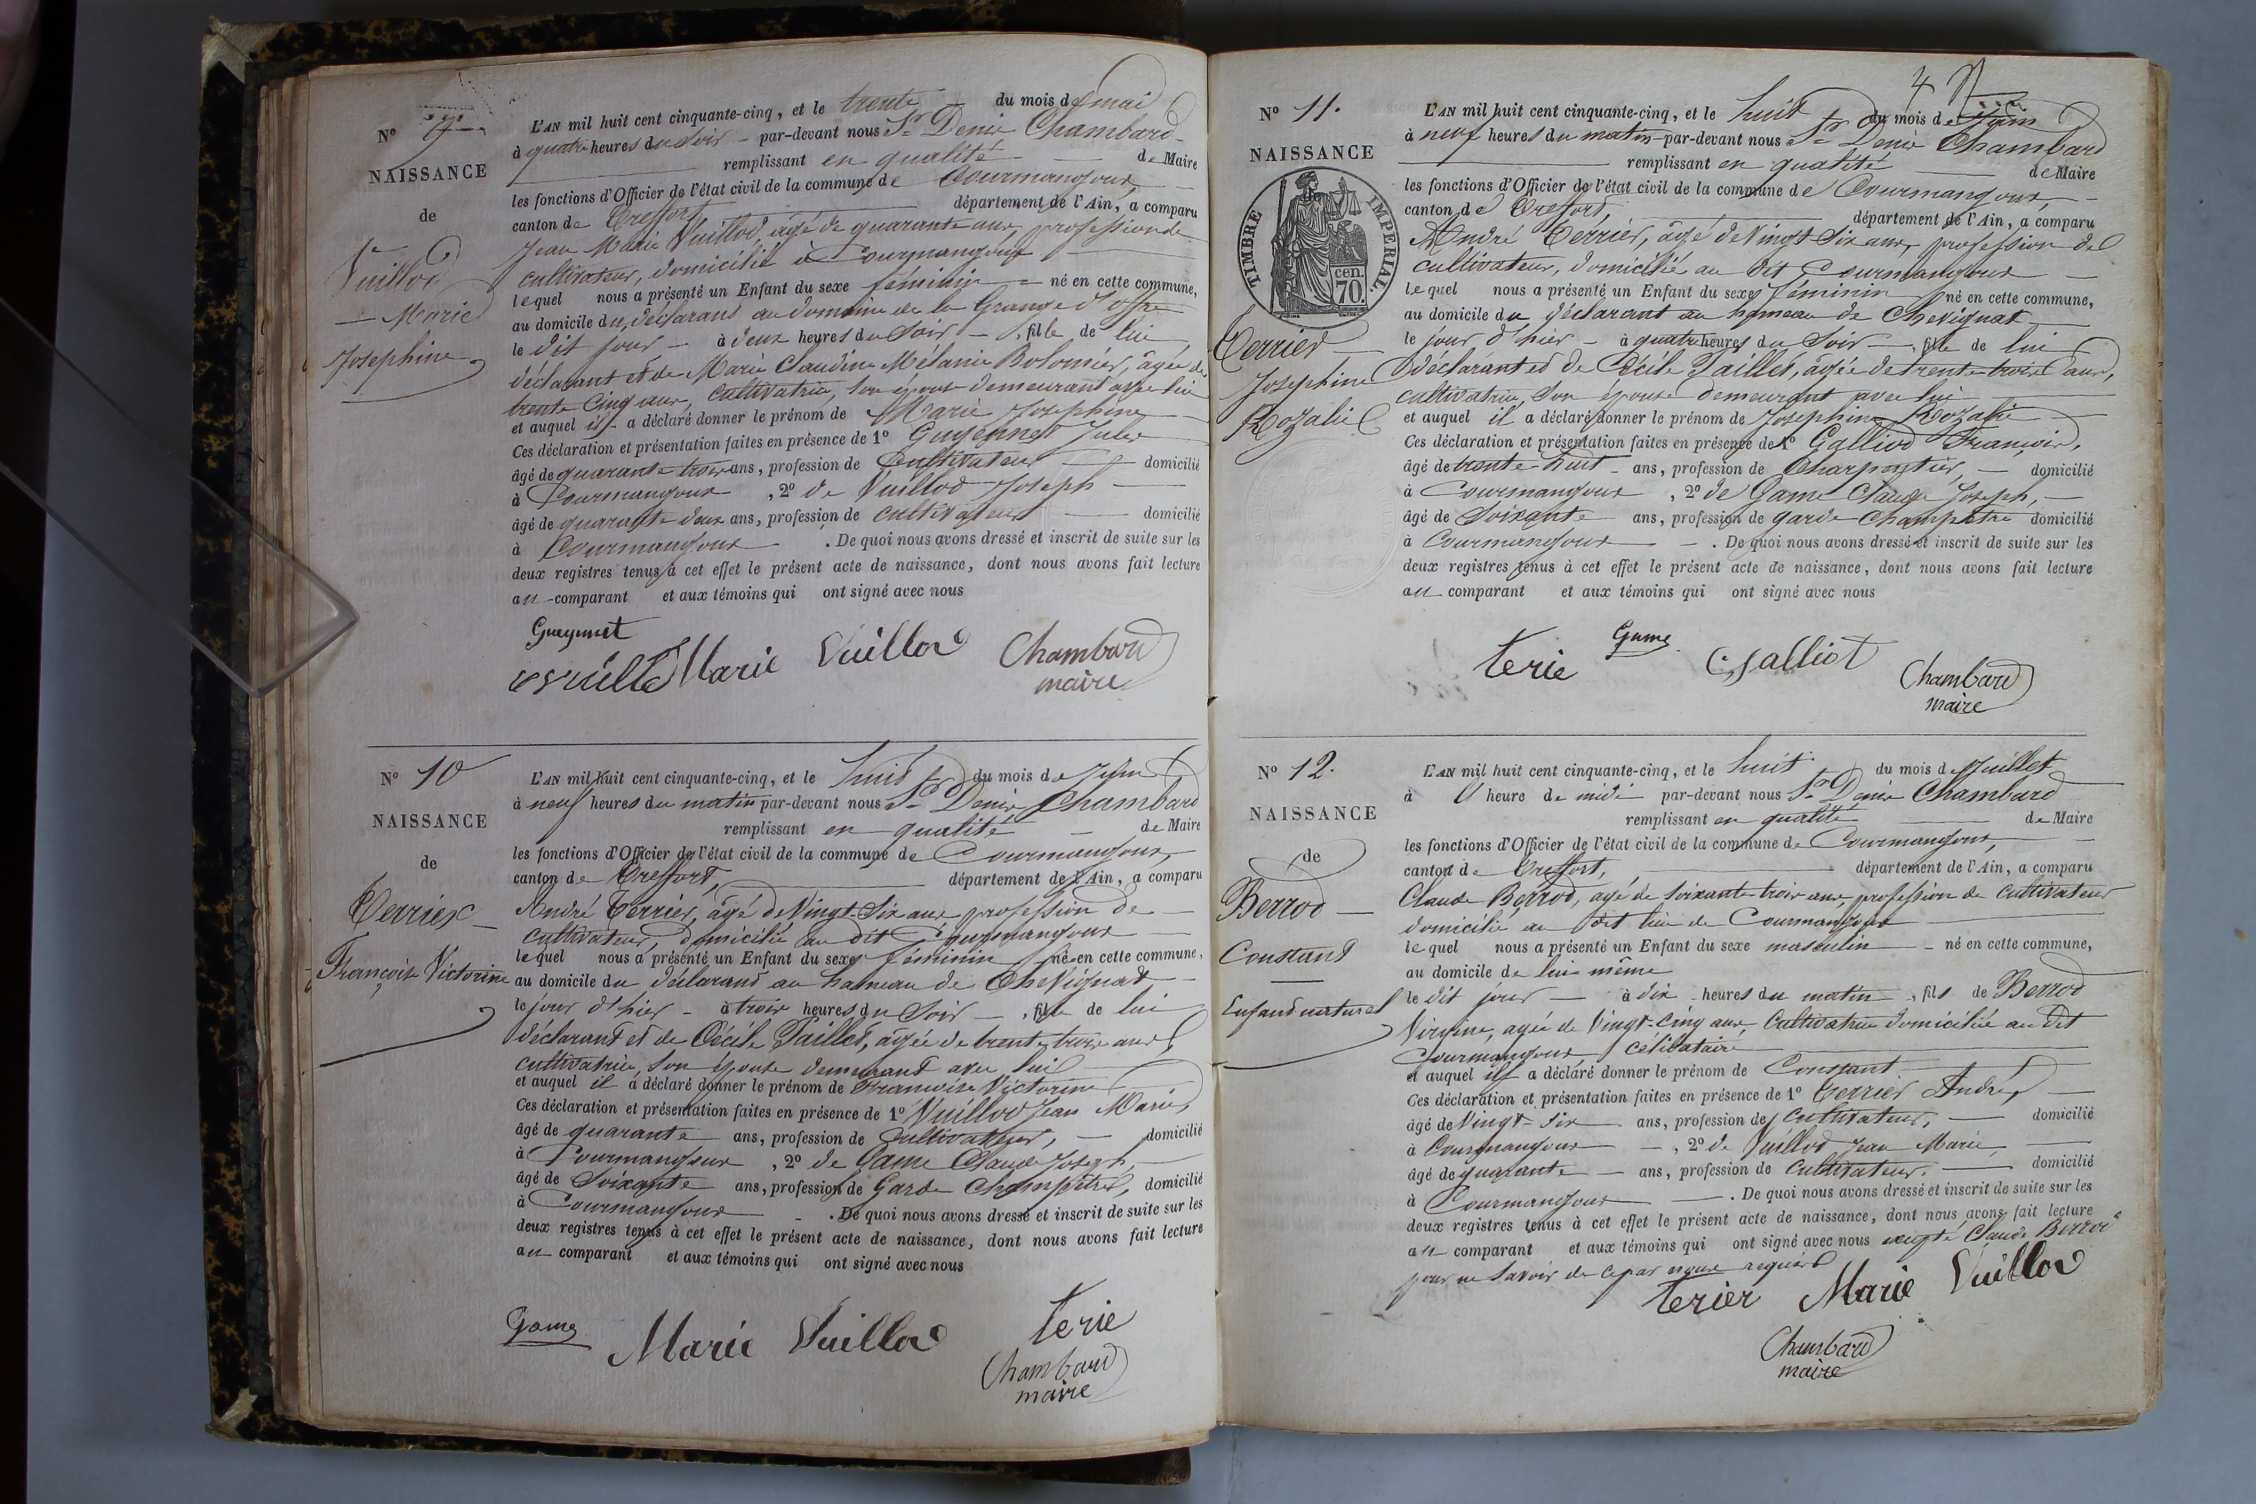 N° 9
NAISSANCE
de
Vuillod
Marie
Josephine
L'AN mil huit cent cinquante-cinq, et le trente du mois de mai
à quatre heures du soir par-devant nous Sr Denis Chambard
remplissant en qualité de Maire
les fonctions d'Officier de l'état civil de la commune de Courmangoux,
canton de Treffort département de l'Ain, a comparu
Jean Marie Vuillod, âgé de quarante ans, profession de
cultivateur, domicilié à Courmangoux
lequel nous a présenté un Enfant du sexe féminin né en cette commune,
au domicile du déclarant au domaine de la Grange
le dit jour à deux heures du soir, fille de lui
déclarant et de Marie Claudine Mélanie Bolomier, âgée de
trente cinq ans, cultivatrice, son épouse demeurant avec lui
et auquel il a déclaré donner le prénom de Marie Josephine
Ces déclaration et présentation faites en présence de 1° Guyennet Jules
âgé de quarante trois ans, profession de Cultivateur domicilié
à Courmangoux, 2° de Vuillod Joseph
âgé de quarante deux ans, profession de cultivateur domicilié
à Courmangoux. De quoi nous avons dressé et inscrit de suite sur les
deux registres tenus à cet effet le présent acte de naissance, dont nous avons fait lecture
au comparant et aux témoins qui ont signé avec nous
Marie Vuillod Chambard
maire
N° 10
NAISSANCE
de
Terrier
François Victorine
L'AN mil huit cent cinquante-cinq, et le huit du mois de Juin
à neuf heures du matin par-devant nous Sr Denis Chambard
remplissant en qualité de Maire
les fonctions d'Officier de l'état civil de la commune de Courmangoux,
canton de Treffort, département de l'Ain, a comparu
André Terrier, âgé de Vingt Six ans profession de
cultivateur, domicilié au dit Courmangoux
lequel nous a présenté un Enfant du sexe féminin né en cette commune,
au domicile du déclarant au hameau de Chevignat
le jour d'hier à trois heures du soir, fille de lui
déclarant et de Cécile Paillet, âgée de trente trois ans,
cultivatrice, son épouse demeurant avec lui
et auquel il a déclaré donner le prénom de Francoise Victorine
Ces déclaration et présentation faites en présence de 1° Vuillod Jean Marie,
âgé de quarante ans, profession de Cultivateur, domicilié
à Courmangoux, 2° de Game Claude Joseph,
âgé de Soixante ans, profession de Garde Champêtre, domicilié
à Courmangoux. De quoi nous avons dressé et inscrit de suite sur les
deux registres tenus à cet effet le présent acte de naissance, dont nous avons fait lecture
au comparant et aux témoins qui ont signé avec nous
Game Marie Vuillod terie
Chambard
maire
4
N° 11.
NAISSANCE
TIMBRE IMPERIAL.
cen.
70.
Terrier
Josephine
Rozalie
L'AN mil huit cent cinquante-cinq, et le huit du mois de Juin
à neuf heures du matin par-devant nous Sr Denis Chambard
remplissant en qualité de Maire
les fonctions d'Officier de l'état civil de la commune de Courmangoux,
canton de Treffort, département de l'Ain, a comparu
André Terrier, âgé de Vingt Six ans, profession de
cultivateur, domicilié au dit Courmangoux
lequel nous a présenté un Enfant du sexe féminin né en cette commune,
au domicile du déclarant au hameau de Chevignat
le jour d'hier à quatre heures du soir, fille de lui
déclarant et de Cécile Paillet, âgée de trente trois ans,
cultivatrice, son épouse demeurant avec lui
et auquel il a déclaré donner le prénom de Josephine Rozalie
Ces déclaration et présentation faites en présence de 1° Galliod François,
âgé de trente huit ans, profession de Charpentier, domicilié
à Courmangoux, 2° de Game Claude Joseph,
âgé de Soixante ans, profession de garde Champêtre domicilié
à Courmangoux. De quoi nous avons dressé et inscrit de suite sur les
deux registres tenus à cet effet le présent acte de naissance, dont nous avons fait lecture
au comparant et aux témoins qui ont signé avec nous
terie Game Galliot
Chambard
maire
N° 12.
NAISSANCE
de
Berrod
Constant
Enfant naturel
L'AN mil huit cent cinquante-cinq, et le huit du mois de Juillet
à l' heure de midi par-devant nous Sr Denis Chambard
remplissant en qualité de Maire
les fonctions d'Officier de l'état civil de la commune de Courmangoux,
canton de Treffort, département de l'Ain, a comparu
Claude Berrod, agé de soixante trois ans, profession de cultivateur
domicilié au dit lieu de Courmangoux
lequel nous a présenté un Enfant du sexe masculin né en cette commune,
au domicile de lui même
le dit jour à dix heures du matin, fils de Berrod
Virginie, agée de Vingt-cinq ans, Cultivatrice domiciliée au dit
Courmangoux, célibataire
et auquel il a déclaré donner le prénom de Constant
Ces déclaration et présentation faites en présence de 1° Terrier André,
âgé de Vingt Six ans, profession de cultivateur, domicilié
à Courmangoux, 2° de Vuillod Jean Marie,
âgé de quarante ans, profession de cultivateur. domicilié
à Courmangoux. De quoi nous avons dressé et inscrit de suite sur les
deux registres tenus à cet effet le présent acte de naissance, dont nous avons fait lecture
au comparant et aux témoins qui ont signé avec nous excepté Claude Berrod
pour ne savoir de ce requis
terier Marie Vuillod
Chambard
maire